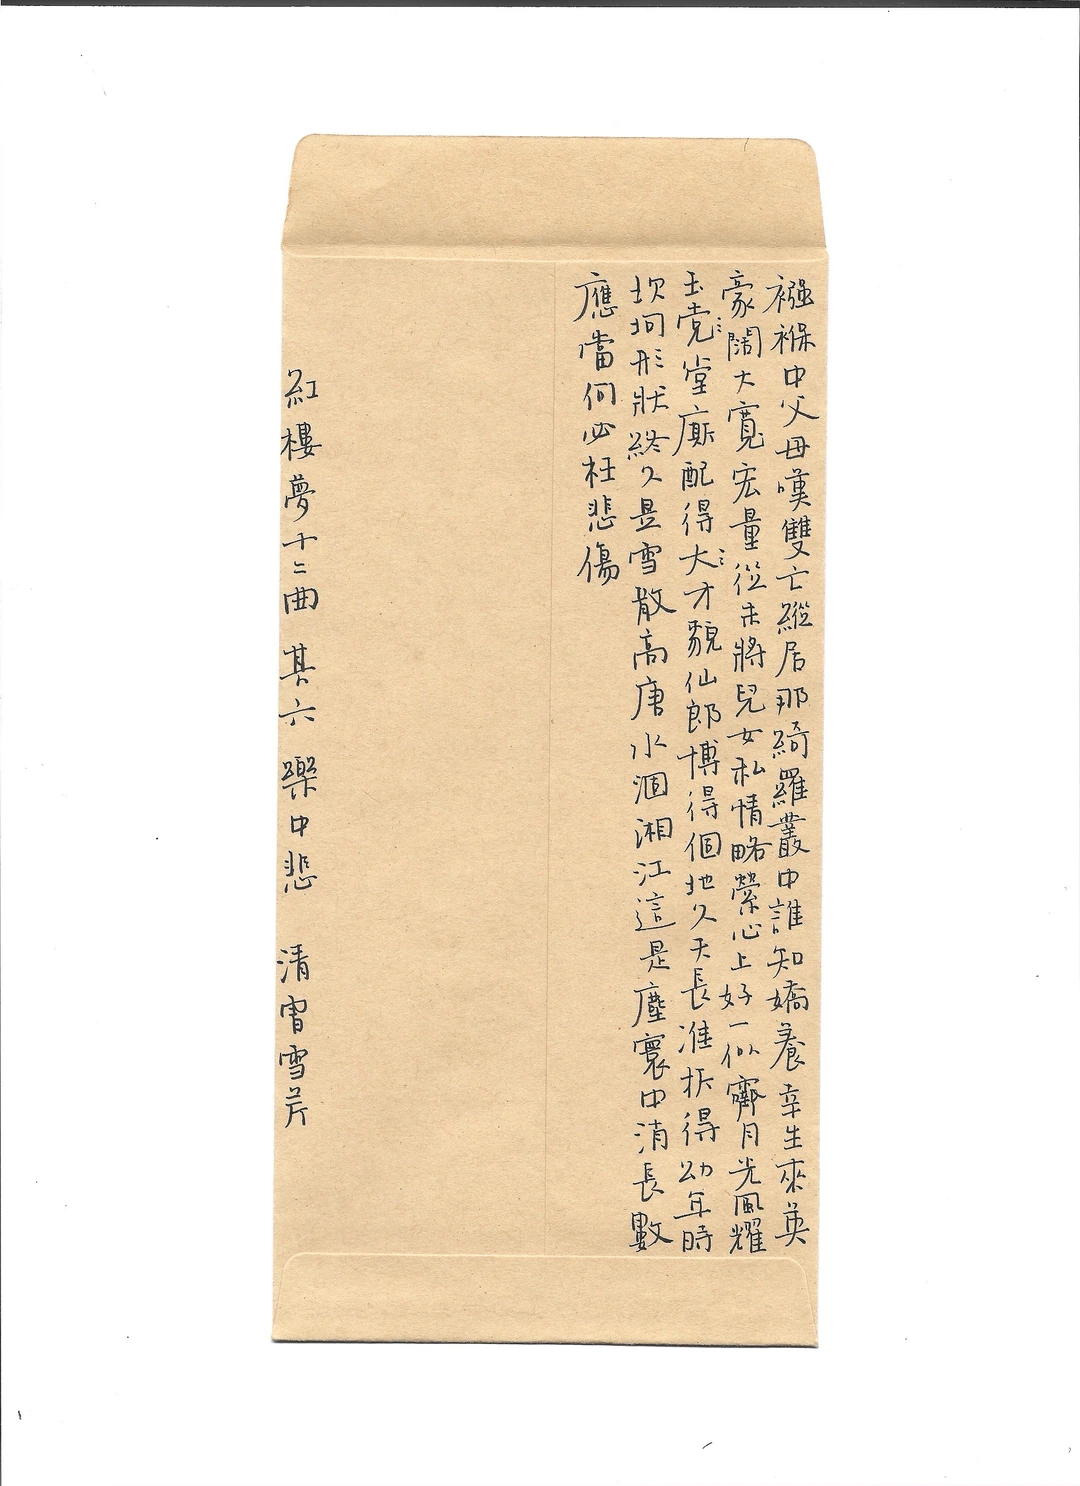 襁褓中父母嘆雙亡縱居那綺羅叢中誰知嬌養幸生來英
豪闊大寬宏量從未將兒女私情略縈心上好一似霽月光風耀
玉党堂廝配得大才貌仙郎博得個地久天長准折得幼年時
坎坷形狀終久是雪散高唐水涸湘江這是塵寰中消長數
應當何必枉悲傷
紅樓夢十二曲 其六 樂中悲 清曹雪芹